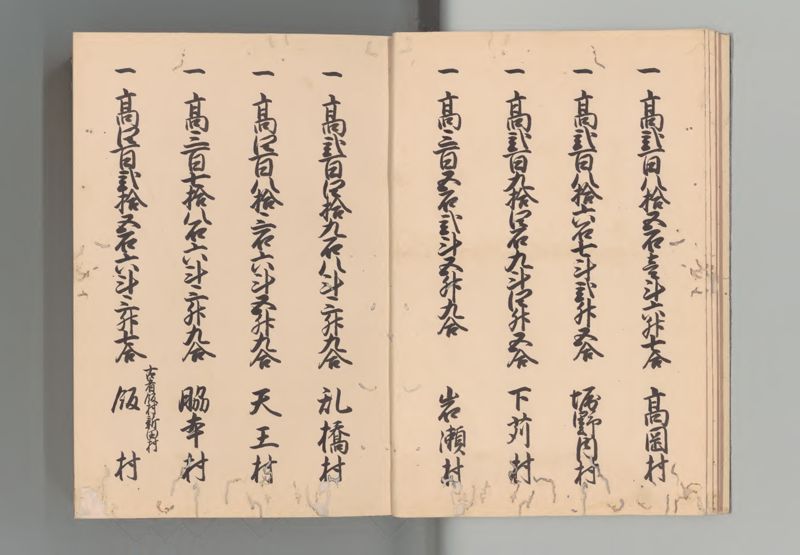 一 高弐百八拾五石壱斗六升七合 高岡村
一 高弐百八拾六石七斗弐升五合 堀野内村
一 高弐百九拾四石九斗四升五合 下苅村
一 高三百五石弐斗五升九合 岩瀬村
一 高弐百四拾九石八斗三升九合 乱橋村
一 高四百八拾三石六斗五升九合 天王村
一 高三百七拾八石六斗三升九合 脇本村
古者飯村新田村
一 高四百弐拾五石六斗三升七合 飯村